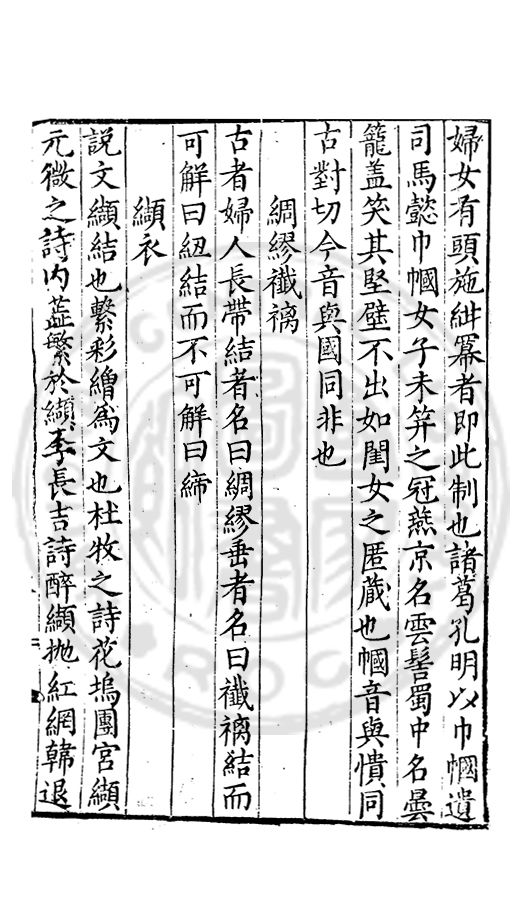 婦女有頭施紺羃者即此制也諸葛孔明以巾幗遺
司馬懿巾幗女子未笄之冠燕京名雲髻蜀中名曇
籠盖笑其堅壁不出如閨女之匿藏也幗音與憒同
古對切今音與國同非也
綢繆襳褵
古者婦人長帶結者名曰綢繆垂者名曰襳褵結而
可解曰紐結而不可解曰締
纈衣
説文纈結也繫彩繒為文也杜牧之詩花塢團宮纈
元微之詩内蘂繁於纈李長吉詩醉纈抛紅網韓退